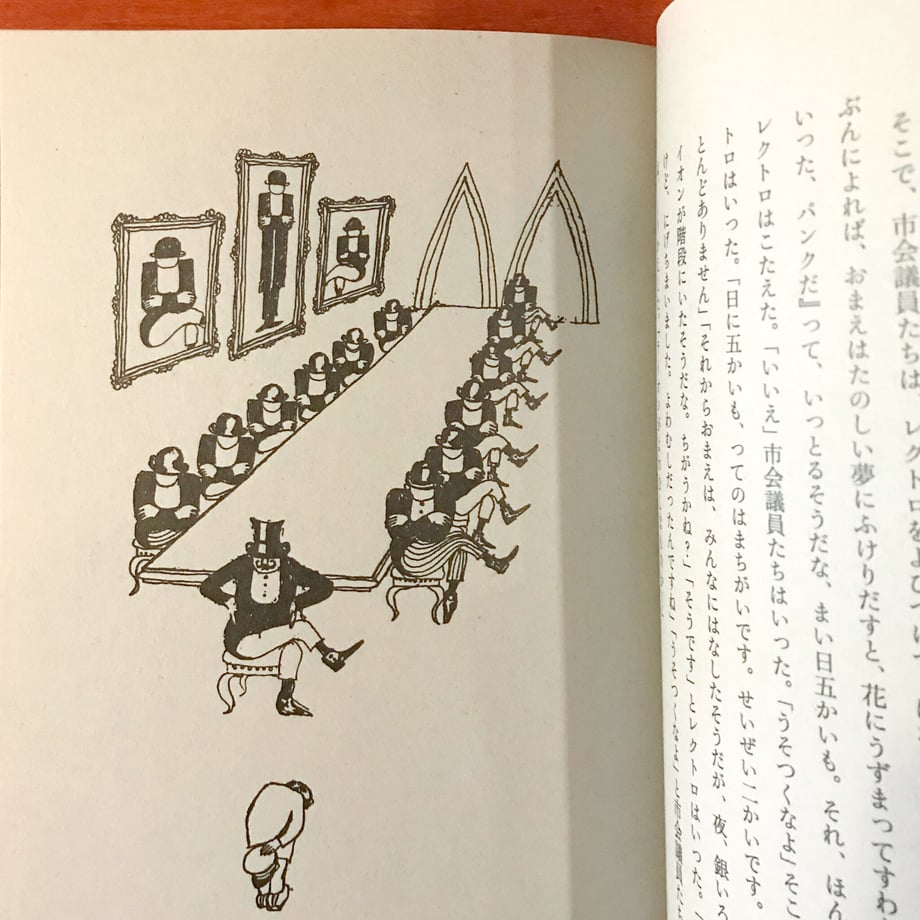 そこで、市会議員たちは、レクトロをよび
ぶんによれば、おまえはたのしい夢にふけりだすと、花にうずまってすわ
いった、パンクだ』って、いっとるそうだな、まい日五かいも。それ、ほん
レクトロはこたえた。「いいえ」市会議員たちはいった。「うそつくなよ」そこ
トロはいった。「日に五かいも、つてのはまちがいです。せいぜい二かいです。
とんどありません」「それからおまえは、みんなにはなしたそうだが、夜、銀いろ
イオンが階段にいたそうだな。ちがうかね?」「そうです」とレクトロはいった。
けど、にげちまいました。よわむしだったんですね」「うそつくなよ」と市会議員たち